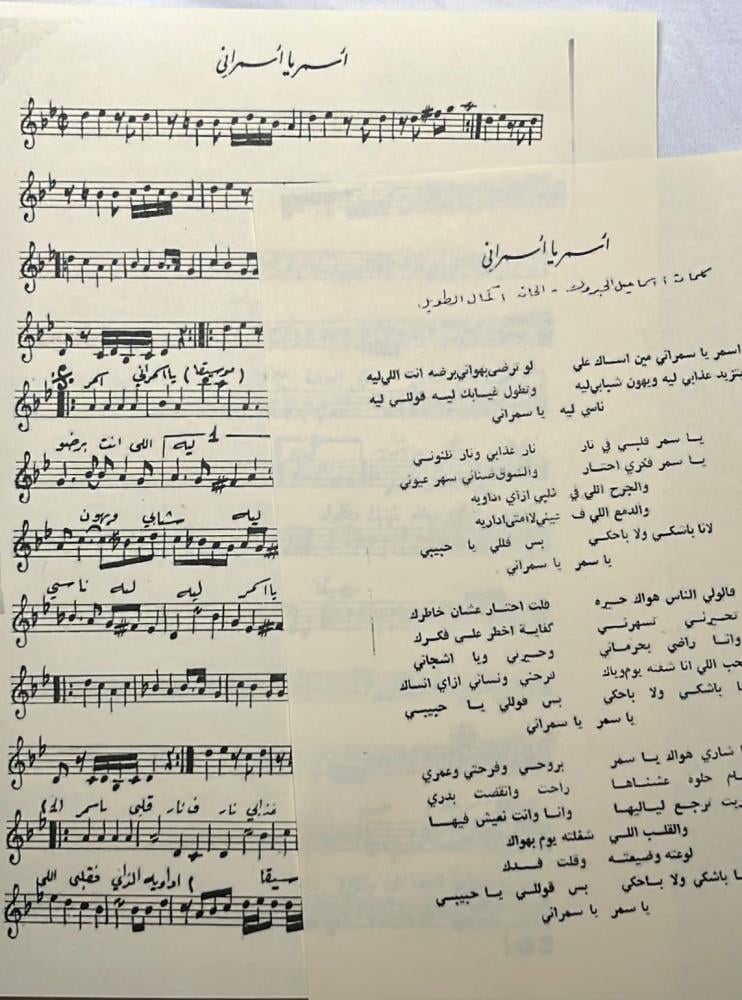 أسمر يا أسمراني
(موسيقا) يا اسمراني اسمر
ليه اللى انت برضو
1
ليه شبابي ويهون
يا اسمر ليه ليه ناسي
عذابي نار ف نار قلبى ياسمر
سيقا ) اداويه ازاي فقلبى اللى
أسمر يا أسمراني
كلمات : اسماعيل الحبروك - الحان : كمال الطويل
اسمر يا سمراني مين اساك علي لو ترضى بهواني برضه انت اللي ليه
بتزيد عذابي ليه ويهون شبابي ليه وتطول غيابك ليه قوللي ليه
ناسي ليه يا سمراني
يا سمر قلبي في نار نار عذابي ونار ظنوني
يا سمر فكري احتار والشوق ضناني سهر عيوني
والجرح اللي في قلبي ازاي اداويه
والدمع اللي ف عيني لا امتى اداريه
لانا باشكي ولا باحكي بس قللي يا حبيبي
يا سمر يا سمراني
قالولي الناس هواك حيره قلت احتار عشان خاطرك
تحيرني تسهرني كفاية اخطر على فكرك
وانا راضي بحرماني وحيرني ويا اشجاني
حب اللي انا شفته يوم وياك فرحني ونساني ازاي انساك
باشكي ولا باحكي بس قوللي يا حبيبي
يا سمر يا سمراني
شاري هواك يا سمر بروحي وفرحتي وعمري
حلوه عشناها راحت وانقضت بدري
ترجع لياليها وانا وانت نعيش فيها
والقلب اللي شغلته يوم بهواك
لوعته وضيعته وقلت فدك
باشكي ولا باحكي بس قوللي يا حبيبي
يا سمر يا سمراني